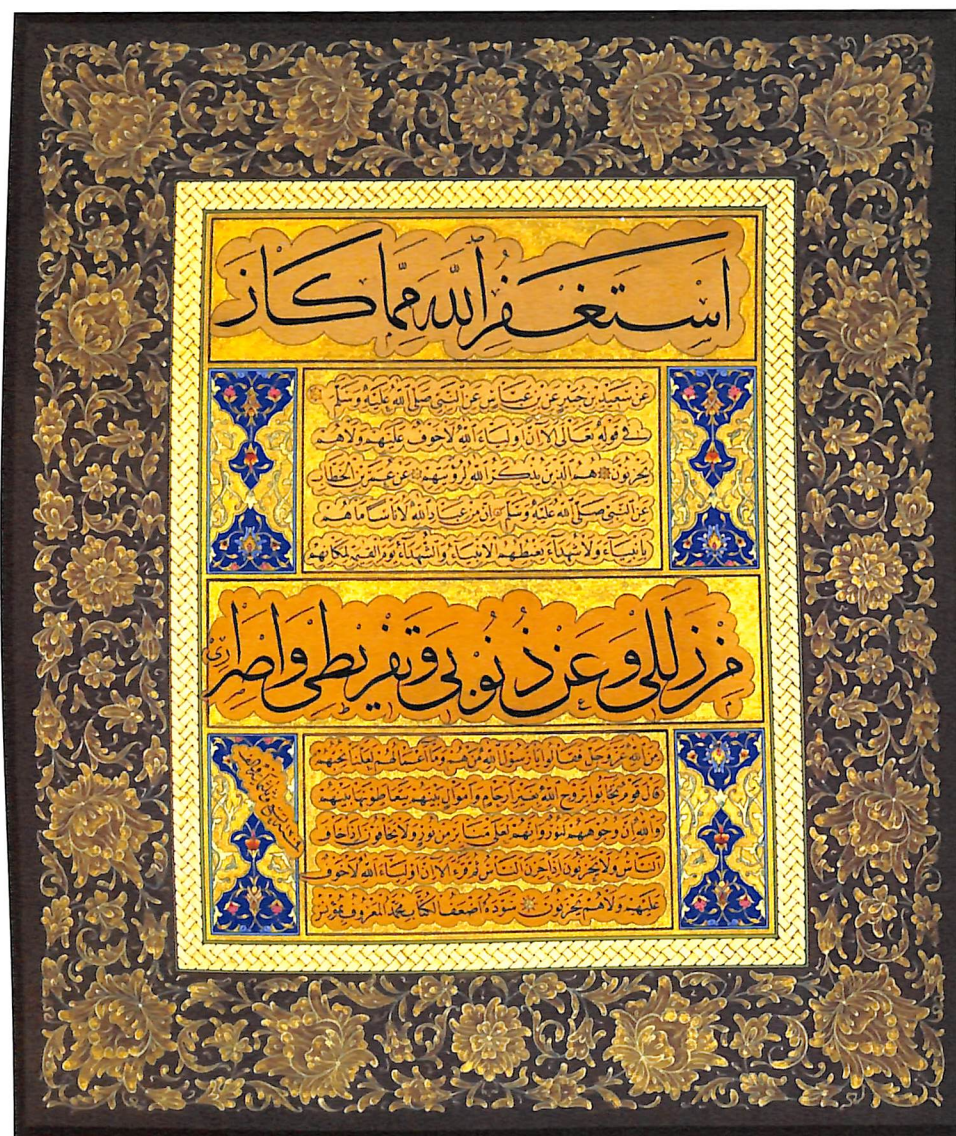 اَسْتَغْفِرُ اللهَ مِمَّا كَانَ
عن سعيد بن جبير عن بن عباس عن النبي صلى الله عليه وسلم
في قوله تعالى الا ان اولياء الله لا خوف عليهم ولا هم
يحزنون هم الذين يذكر الله لرؤيتهم عن عمر بن الخطاب
عن النبي صلى الله عليه وسلم ان من عباد الله لاناسا ما هم
بانبياء ولا شهداء يغبطهم الانبياء والشهداء يوم القيمة لمكانهم
مِنْ زَلَلِي وَعَنْ ذُنُوبِي وَتَفْرِيطِي وَاِصْرَارِي
من الله عز وجل فقالوا يا رسول الله من هم وما اعمالهم لعلنا نحبهم
قال قوم تحابوا بروح الله بغير ارحام ولا اموال بينهم يتعاطونها بينهم
والله ان وجوههم لنور وانهم لعلى منابر من نور ولا يخافون اذا خاف
الناس ولا يحزنون اذا حزن الناس ثم قرء الا ان اولياء الله لا خوف
عليهم ولا هم يحزنون سوده اضعف الكتاب محمد المعروف